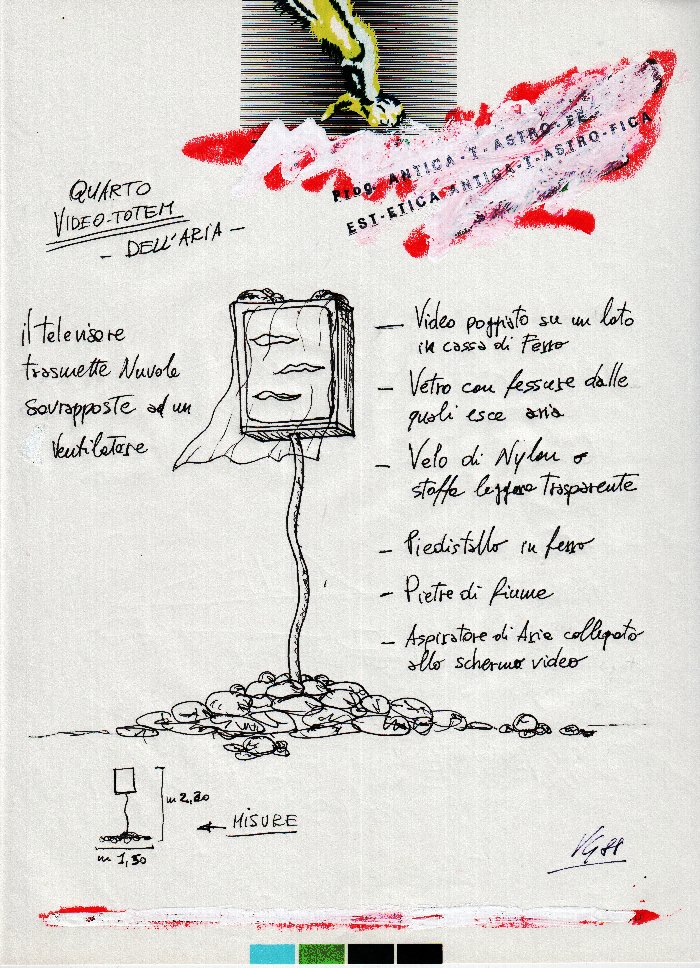 Prog. ANTICA-T-ASTRO-FE
EST-ETICA ANTICA-T-ASTRO-FICA
QUARTO
VIDEO-TOTEM
- DELL'ARIA -
il televisore
trasmette Nuvole
sovrapposte ad un
Ventilatore
- Video poggiato su un lato
in cassa di Ferro
- Vetro con fessure dalle
quali esce aria
- Velo di Nylon o
stoffa leggera trasparente
- Piedistallo in ferro
- Pietre di fiume
- Aspiratore di Aria collegato
allo schermo video
m 2,20
MISURE
m 1,50
VG88